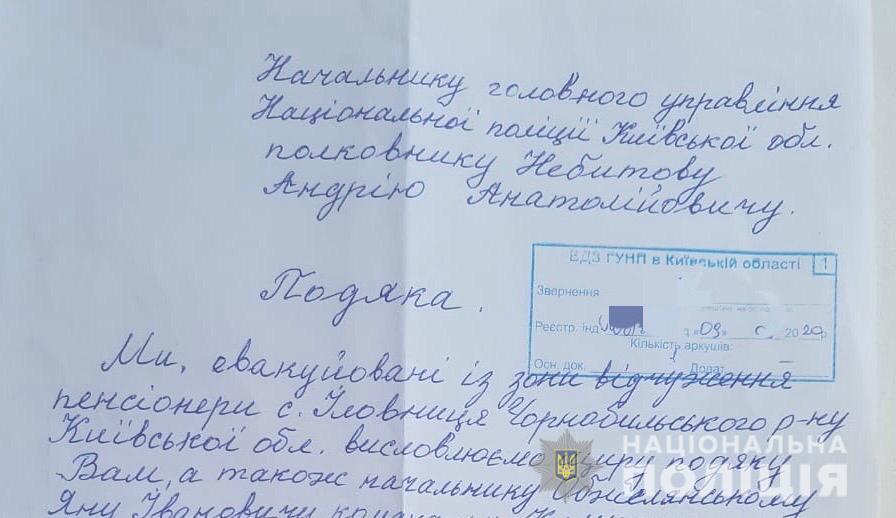 Начальнику головного управління
Національної поліції Київської обл.
полковнику Небитову
Андрію Анатолійовичу.
ВДЗ ГУНП в Київській області 1
Звернення
Реєстр. інд. "09" 2020р
Кількість аркушів:
Осн. док. 1 Додат. –
Подяка.
Ми, евакуйовані із зони відчуження
пенсіонери с. Іловниця Чорнобильського р-ну
Київської обл. висловлюємо щиру подяку
Вам, а також начальнику
Яну Івановичу
НАЦІОНАЛЬНА
ПОЛІЦІЯ